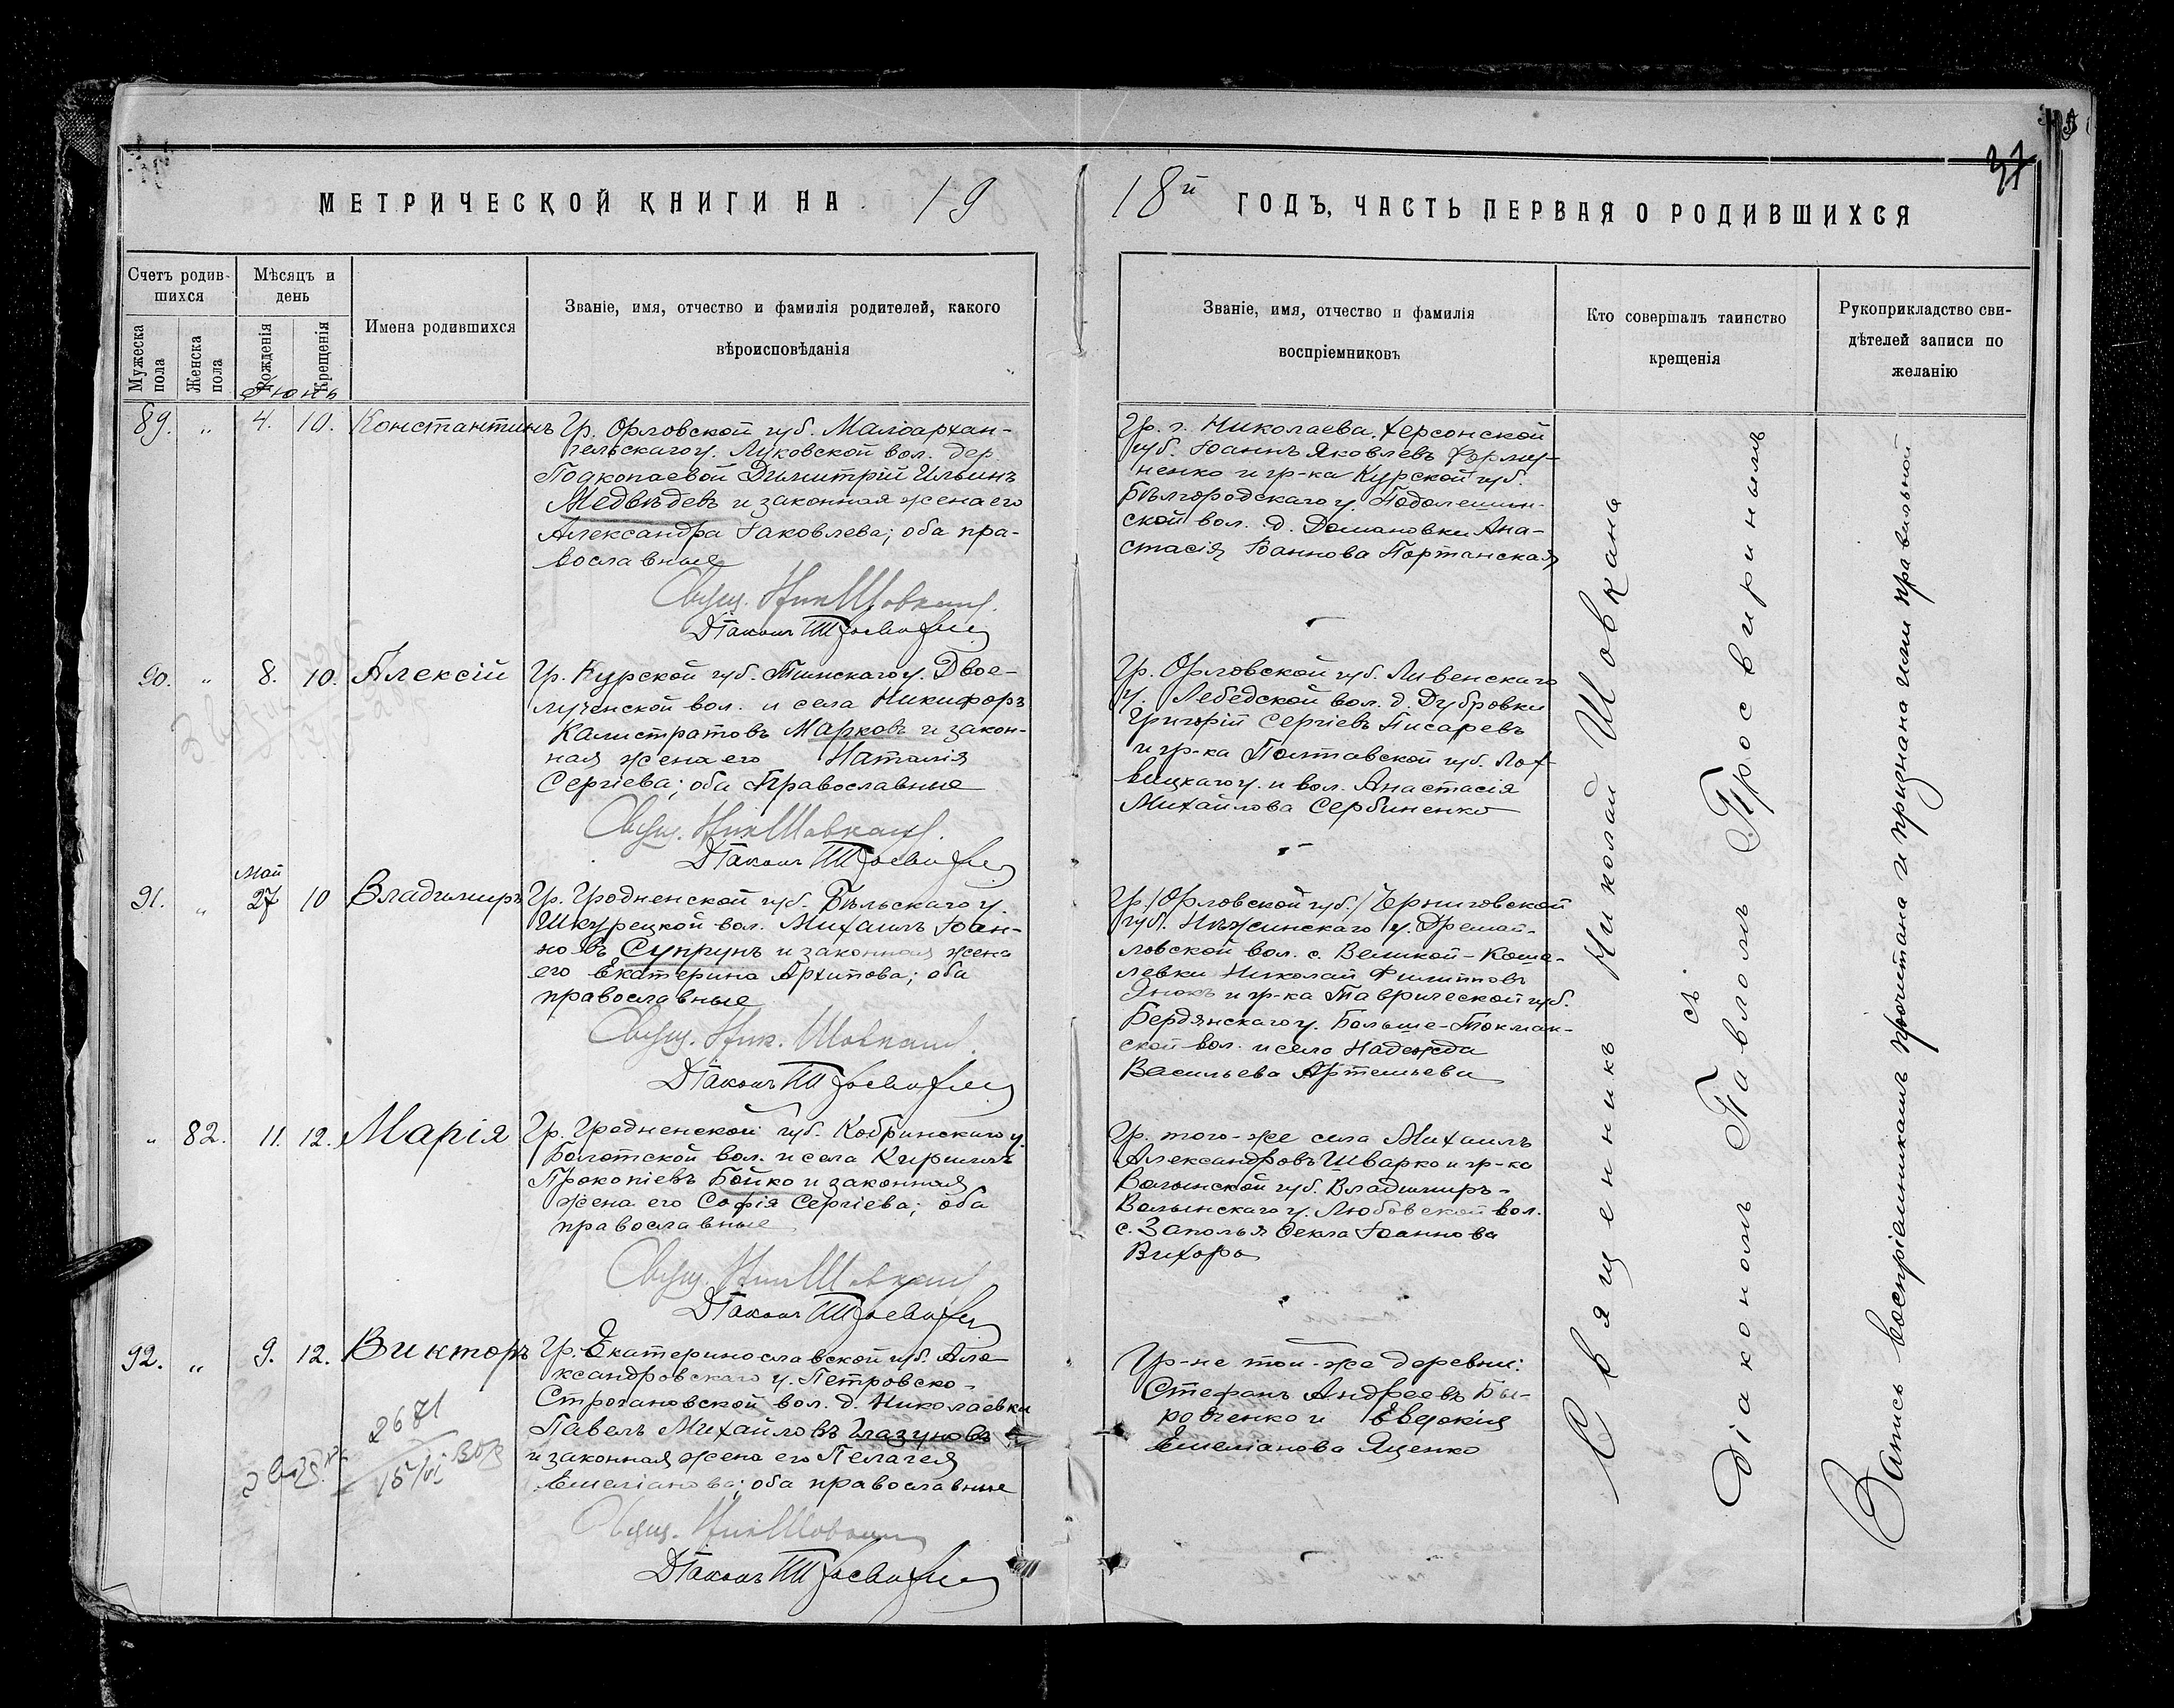 37
МЕТРИЧЕСКОЙ КНИГИ НА 19
18й ГОДЪ, ЧАСТЬ ПЕРВАЯ О РОДИВШИХСЯ
Счетъ родив-
шихся
Мужеска пола
Женска пола
Мѣсяцъ и
день
Рожденія
Крещенія
Имена родившихся
Званіе, имя, отчество и фамилія родителей, какого
вѣроисповѣданія
Званіе, имя, отчество и фамилія
воспріемниковъ
Кто совершалъ таинство
крещенія
Рукоприкладство сви-
дѣтелей записи по
желанію
Іюнь
89. " 4. 10. Константинъ
Гр. Орловской губ. Малоархан-
гельскаго у. Луковской вол. дер.
Подкопаевой Димитрій Ильинъ
Медвѣдевъ и законная жена его
Александра Іаковлева; оба пра-
вославные
Свящ. Ник Шовкань
Діаконъ П Просвирин
Гр. г. Николаева, Херсонской
губ. Іоаннъ Яковлевъ
ненко и гр-ка Курской губ.
Бѣлгородскаго у.
ской вол. д. Домановки Ана-
стасія Іоаннова Портанская
90. " 8. 10. Алексій
Гр. Курской губ. Тимскаго у. Двое-
лученской вол. и села Никифоръ
Калистратовъ Марковъ и закон-
ная жена его Наталія
Сергіева; оба Православные
Свящ. Ник Шовкань
Діаконъ П Просвирин
Гр. Орловской губ. Ливенскаго
у. Лебедской вол. д. Дубровки
Григорій Сергіевъ Писаревъ
и гр-ка Полтавской губ. Лох-
вицкаго у. и вол. Анастасія
Михайлова Сербиненко
91. " Май 27 10 Владимиръ
Гр. Гродненской губ. Бѣльскаго у.
Шкурецкой вол. Михаилъ Іоан-
новъ Супрунъ и законная жена
его Екатерина Архипова; оба
православные
Свящ. Ник. Шовкань
Діаконъ П Просвирин
Гр. /Орловской губ./ Черниговской
губ. Нѣжинскаго у. Дремай-
ловской вол. с. Великой-Коше-
левки Николай Филипповъ
Янокъ и гр-ка Таврической губ.
Бердянскаго у. Больше-Токмак-
ской вол. и села Надежда
Васильева Артемьева
" 82. 11. 12. Марія
Гр. Гродненской губ. Кобринскаго у.
Болотской вол. и села Кириллъ
Прокопіевъ Бойко и законная
жена его Софія Сергіева; оба
православные
Свящ. Ник Шовкань
Діаконъ П Просвирин
Гр. того-же села Михаилъ
Александровъ Шварко и гр-ка
Волынской губ. Владимиръ-
Волынскаго у. Любовской вол.
с. Заполья Ѳекла Іоаннова
Вихоро
92. " 9. 12. Викторъ
Гр. Екатеринославской губ. Але-
ксандровскаго у. Петровско-
Строгановской вол. д. Николаевки
Павелъ Михайловъ Глазуновъ
и законная жена его Пелагея
Емеліанова; оба православные
Свящ. Ник Шовкань
Діаконъ П Просвирин
Гр-не той-же деревни:
Стефанъ Андреевъ Бы-
ровченко и Евдокія
Емеліанова Яценко
2671
15/VI
Священникъ Николай Шовкань
съ
Діакономъ Павломъ Просвиринымъ
Запись воспріемникамъ прочитана и признана ими правильной